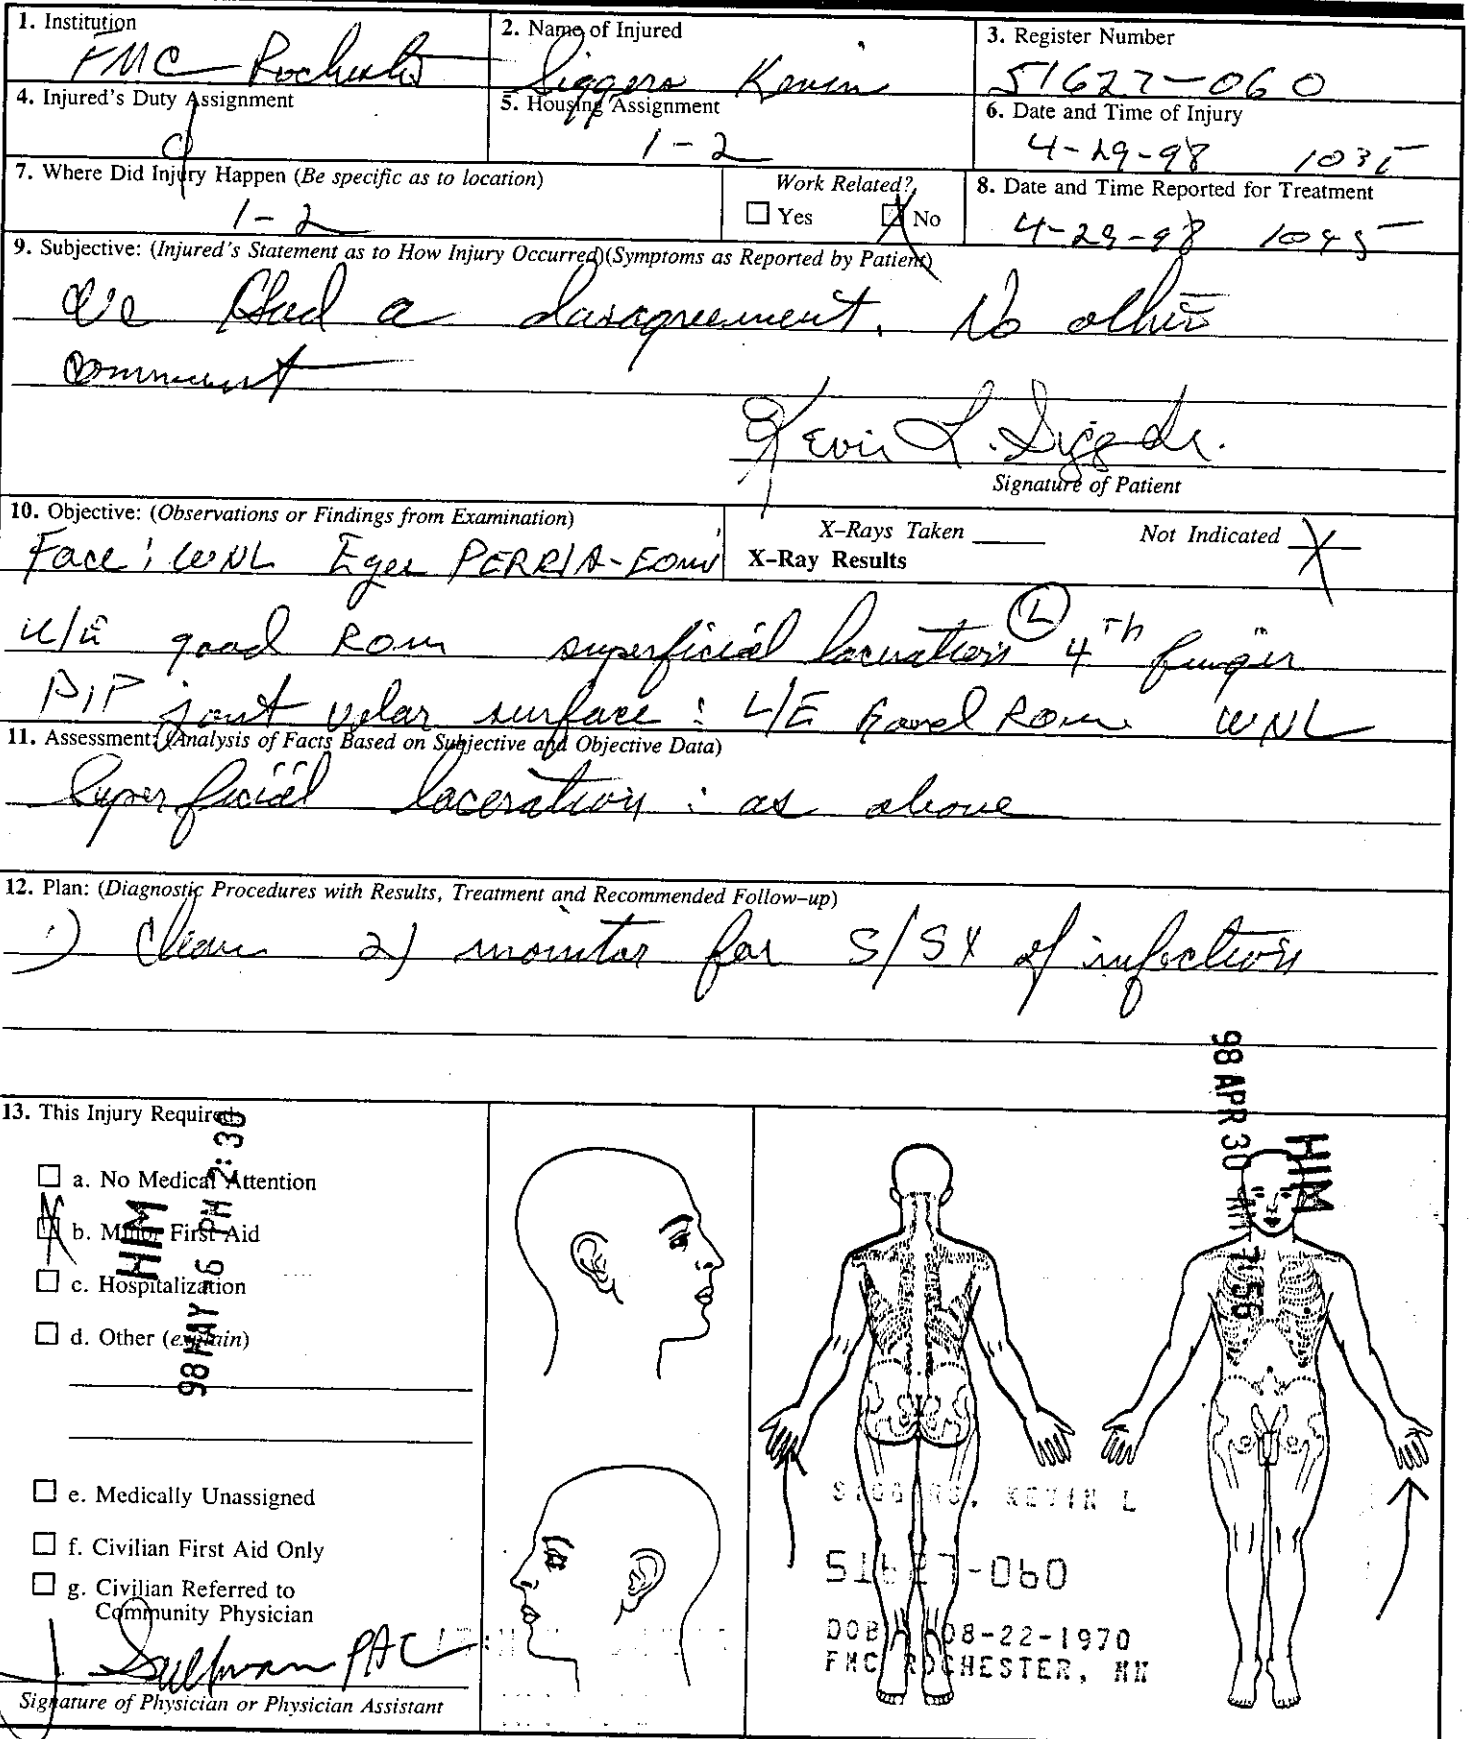 1. Institution
FMC Rochester
2. Name of Injured
Siggers Kevin
3. Register Number
51627-060
4. Injured's Duty Assignment
5. Housing Assignment
1-2
6. Date and Time of Injury
4-29-98 1035
7. Where Did Injury Happen (Be specific as to location)
1-2
Work Related?
Yes No
8. Date and Time Reported for Treatment
4-29-98 1045
9. Subjective: (Injured's Statement as to How Injury Occurred)(Symptoms as Reported by Patient)
We Had a disagreement. No other
comment
Kevin L.
Signature of Patient
10. Objective: (Observations or Findings from Examination)
X-Rays Taken Not Indicated X
X-Ray Results
Face: WNL Eyes
U/E good ROM superficial laceration (L) 4th finger
PIP joint volar surface : L/E Good ROM WNL
11. Assessment: (Analysis of Facts Based on Subjective and Objective Data)
Superficial laceration : as above
12. Plan: (Diagnostic Procedures with Results, Treatment and Recommended Follow-up)
1) Clean 2) monitor for S/SX of infection
13. This Injury Required:
a. No Medical Attention
b. Minor First Aid
c. Hospitalization
d. Other (explain)
e. Medically Unassigned
f. Civilian First Aid Only
g. Civilian Referred to
Community Physician
J Sullivan PAC
Signature of Physician or Physician Assistant
HIM
98 MAY -6 PM 2:30
HIM
98 APR 30 AM 7:56
SIGGERS, KEVIN L
51627-060
DOB 08-22-1970
FMC ROCHESTER, MN